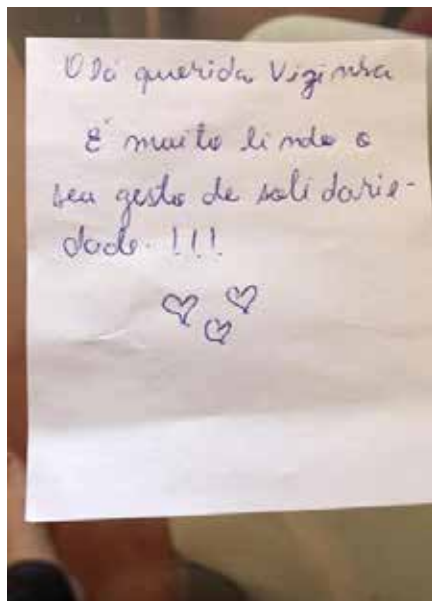 Olá querida Vizinha
É muito lindo o
seu gesto de solidarie-
dade. !!!